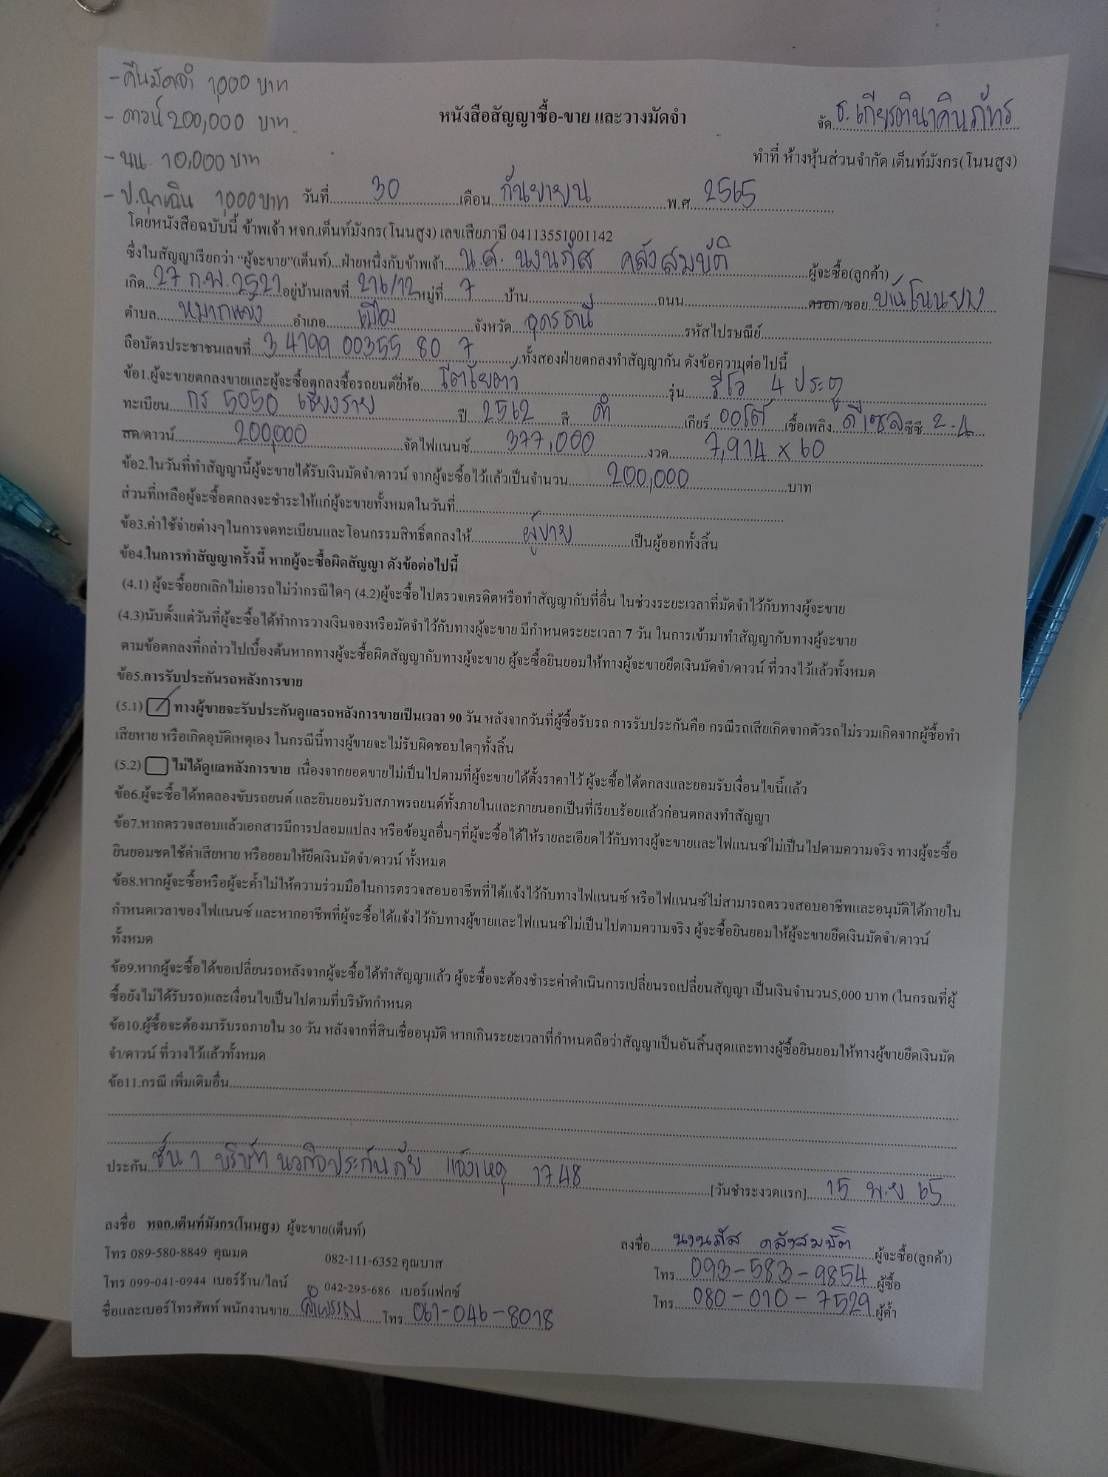 - คืนมัดจำ 1,000 บาท
- ดาวน์ 200,000 บาท
- นน. 10,000 บาท
- ป.ฉุกเฉิน 1,000 บาท
หนังสือสัญญาซื้อ-ขาย และวางมัดจำ
จัด ธ.เกียรตินาคินภัทร
ทำที่ ห้างหุ้นส่วนจำกัด เต็นท์มังกร(โนนสูง)
วันที่ 30 เดือน กันยายน พ.ศ. 2565
โดยหนังสือฉบับนี้ ข้าพเจ้า หจก.เต็นท์มังกร(โนนสูง) เลขเสียภาษี 04113551001142
ซึ่งในสัญญาเรียกว่า "ผู้จะขาย"(เต็นท์)...ฝ่ายหนึ่งกับข้าพเจ้า น.ส. นงนภัส คลังสมบัติ ผู้จะซื้อ(ลูกค้า)
เกิด 27 ก.พ. 2522 อยู่บ้านเลขที่ 216/12 หมู่ที่ 7 บ้าน ถนน ตรอก/ซอย บ้านโนนยาง
ตำบล หมากแข้ง อำเภอ เมือง จังหวัด อุดรธานี รหัสไปรษณีย์
ถือบัตรประชาชนเลขที่ 3 4199 00355 80 7 ทั้งสองฝ่ายตกลงทำสัญญากัน ดังข้อความต่อไปนี้
ข้อ1.ผู้จะขายตกลงขายและผู้จะซื้อตกลงซื้อรถยนต์ยี่ห้อ โตโยต้า รุ่น รีโว่ 4 ประตู
ทะเบียน กร 5050 เชียงราย ปี 2562 สี ดำ เกียร์ ออโต้ เชื้อเพลิง ดีเซล ซีซี 2.4
สด/ดาวน์ 200,000 จัดไฟแนนซ์ 377,000 งวด 7,914 x 60
ข้อ2.ในวันที่ทำสัญญานี้ผู้จะขายได้รับเงินมัดจำ/ดาวน์ จากผู้จะซื้อไว้แล้วเป็นจำนวน 200,000 บาท
ส่วนที่เหลือผู้จะซื้อตกลงจะชำระให้แก่ผู้จะขายทั้งหมดในวันที่
ข้อ3.ค่าใช้จ่ายต่างๆในการจดทะเบียนและโอนกรรมสิทธิ์ตกลงให้ ผู้ขาย เป็นผู้ออกทั้งสิ้น
ข้อ4.ในการทำสัญญาครั้งนี้ หากผู้จะซื้อผิดสัญญา ดังข้อต่อไปนี้
(4.1) ผู้จะซื้อยกเลิกไม่เอารถไม่ว่ากรณีใดๆ (4.2)ผู้จะซื้อไปตรวจเครดิตหรือทำสัญญากับที่อื่น ในช่วงระยะเวลาที่มัดจำไว้กับทางผู้จะขาย
(4.3)นับตั้งแต่วันที่ผู้จะซื้อได้ทำการวางเงินจองหรือมัดจำไว้กับทางผู้จะขาย มีกำหนดระยะเวลา 7 วัน ในการเข้ามาทำสัญญากับทางผู้จะขาย
ตามข้อตกลงที่กล่าวไปเบื้องต้นหากทางผู้จะซื้อผิดสัญญากับทางผู้จะขาย ผู้จะซื้อยินยอมให้ทางผู้จะขายยึดเงินมัดจำ/ดาวน์ ที่วางไว้แล้วทั้งหมด
ข้อ5.การรับประกันรถหลังการขาย
(5.1) ทางผู้ขายจะรับประกันดูแลรถหลังการขายเป็นเวลา 90 วัน หลังจากวันที่ผู้ซื้อรับรถ การรับประกันคือ กรณีรถเสียเกิดจากตัวรถไม่รวมเกิดจากผู้ซื้อทำ
เสียหาย หรือเกิดอุบัติเหตุเอง ในกรณีนี้ทางผู้ขายจะไม่รับผิดชอบใดๆทั้งสิ้น
(5.2) ไม่ได้ดูแลหลังการขาย เนื่องจากยอดขายไม่เป็นไปตามที่ผู้จะขายได้ตั้งราคาไว้ ผู้จะซื้อได้ตกลงและยอมรับเงื่อนไขนี้แล้ว
ข้อ6.ผู้จะซื้อได้ทดลองขับรถยนต์ และยินยอมรับสภาพรถยนต์ทั้งภายในและภายนอกเป็นที่เรียบร้อยแล้วก่อนตกลงทำสัญญา
ข้อ7.หากตรวจสอบแล้วเอกสารมีการปลอมแปลง หรือข้อมูลอื่นๆที่ผู้จะซื้อได้ให้รายละเอียดไว้กับทางผู้จะขายและไฟแนนซ์ไม่เป็นไปตามความจริง ทางผู้จะซื้อ
ยินยอมชดใช้ค่าเสียหาย หรือยอมให้ยึดเงินมัดจำ/ดาวน์ ทั้งหมด
ข้อ8.หากผู้จะซื้อหรือผู้จะค้ำไม่ให้ความร่วมมือในการตรวจสอบอาชีพที่ได้แจ้งไว้กับทางไฟแนนซ์ หรือไฟแนนซ์ไม่สามารถตรวจสอบอาชีพและอนุมัติได้ภายใน
กำหนดเวลาของไฟแนนซ์ และหากอาชีพที่ผู้จะซื้อได้แจ้งไว้กับทางผู้ขายและไฟแนนซ์ไม่เป็นไปตามความจริง ผู้จะซื้อยินยอมให้ผู้จะขายยึดเงินมัดจำ/ดาวน์
ทั้งหมด
ข้อ9.หากผู้จะซื้อได้ขอเปลี่ยนรถหลังจากผู้จะซื้อได้ทำสัญญาแล้ว ผู้จะซื้อจะต้องชำระค่าดำเนินการเปลี่ยนรถเปลี่ยนสัญญา เป็นเงินจำนวน5,000 บาท (ในกรณที่ผู้
ซื้อยังไม่ได้รับรถ)และเงื่อนไขเป็นไปตามที่บริษัทกำหนด
ข้อ10.ผู้ซื้อจะต้องมารับรถภายใน 30 วัน หลังจากที่สินเชื่ออนุมัติ หากเกินระยะเวลาที่กำหนดถือว่าสัญญาเป็นอันสิ้นสุดและทางผู้ซื้อยินยอมให้ทางผู้ขายยึดเงินมัด
จำ/ดาวน์ ที่วางไว้แล้วทั้งหมด
ข้อ11.กรณี เพิ่มเติมอื่น
ประกัน ชั้น 1 บริษัท นวกิจประกันภัย แจ้งเหตุ 1748 [วันชำระงวดแรก] 15 พ.ย 65
ลงชื่อ หจก.เต็นท์มังกร(โนนสูง) ผู้จะขาย(เต็นท์)
ลงชื่อ นงนภัส คลังสมบัติ ผู้จะซื้อ(ลูกค้า)
โทร 089-580-8849 คุณมด 082-111-6352 คุณบาส
โทร 093-583-9854 ผู้ซื้อ
โทร 099-041-0944 เบอร์ร้าน/ไลน์ 042-295-686 เบอร์แฟกซ์
โทร 080-010-7529 ผู้ค้ำ
ชื่อและเบอร์โทรศัพท์ พนักงานขาย โทร 061-046-8018